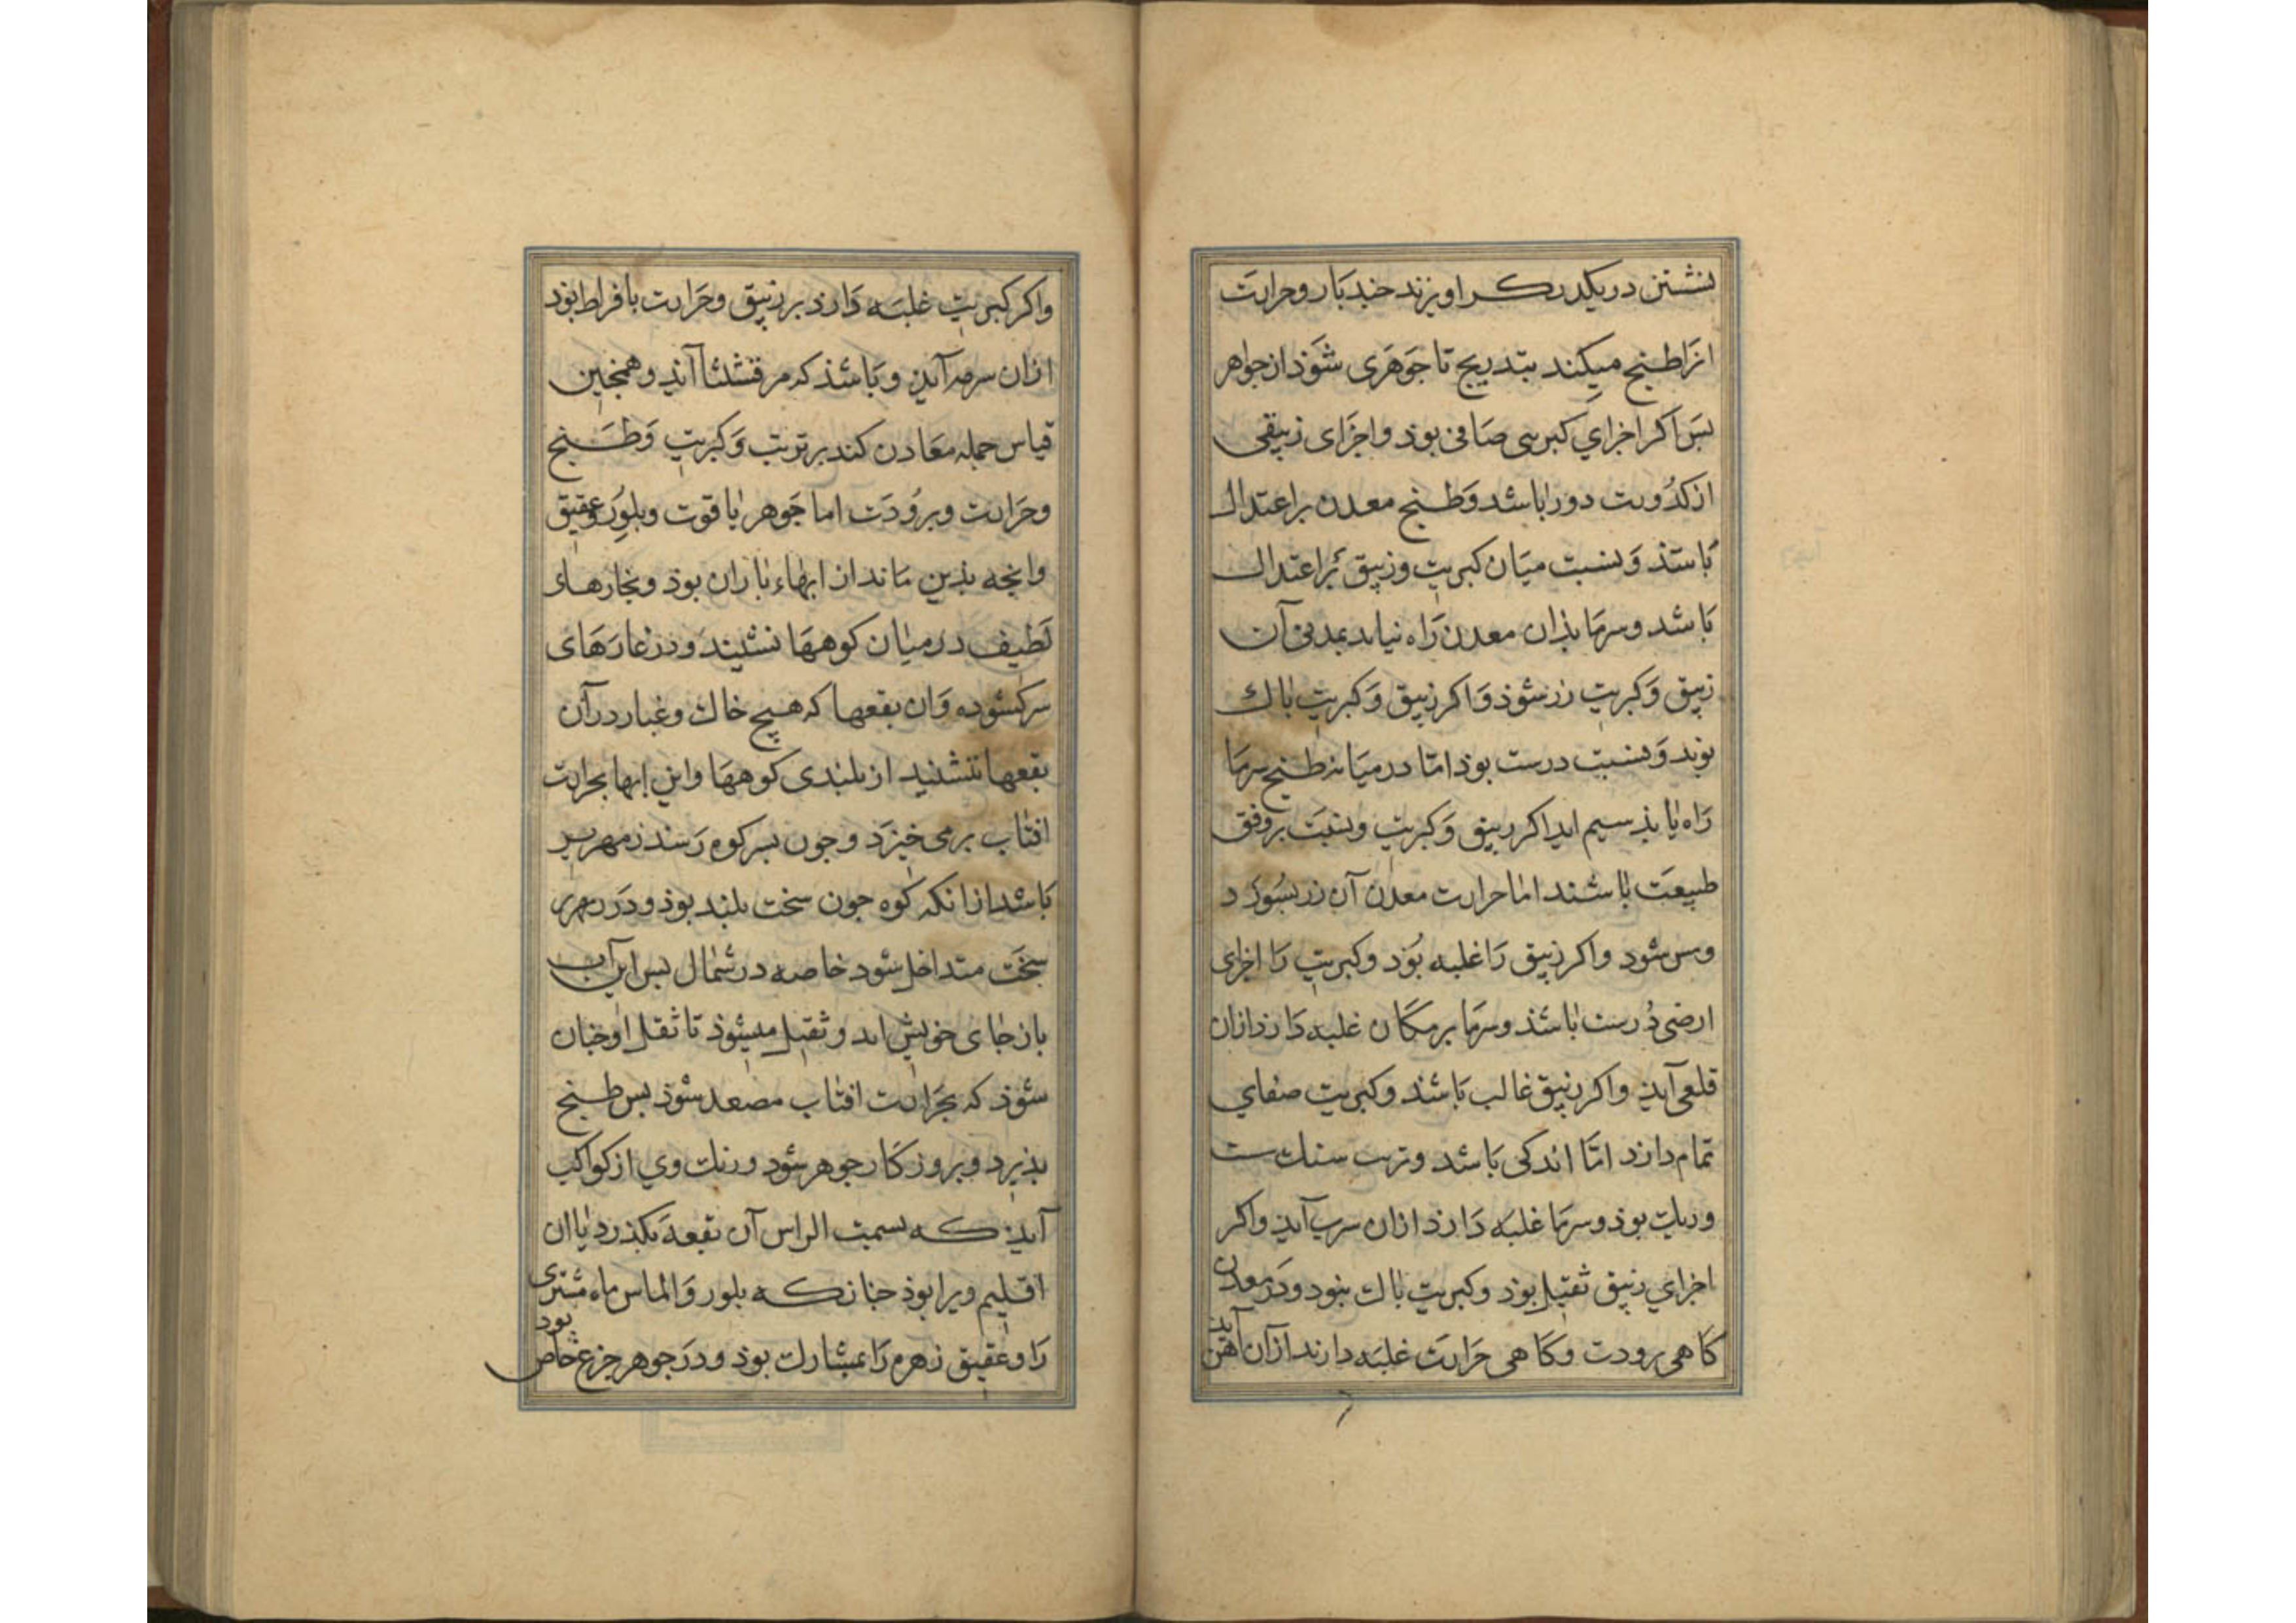 نشتن در یکدیکر اویزند جند بار و حرارت
انرا طبخ میکند بتدریج تا جوهری شوذ از جواهر
بس اکر اجزای کبریتی صافی بوذ و اجزای زیبقی
از کدورت دور باشد و طبخ معدن بر اعتدال
باشذ و نسبت میان کبریت و زیبق بر اعتدال
باشد و سرما بذان معدن راه نیابد بمدتی آن
زیبق و کبریت زر شوذ و اکر زیبق و کبریت باک
بوند و نسبت درست بوذ امّا در میانه طبخ سرما
راه یابذ سیم اید اکر زیبق و کبریت و نسبت بر وفق
طبیعت باشند اما حرارت معدن آن زر بسوزد
و مس شود و اکر زیبق را غلبه بُوَذ و کبریت را اجزای
ارضی دُرست باشذ و سرما بر مکان غلبه دارذ ازان
قلعی آیذ و اکر زیبق غالب باشذ و کبریت صفای
تمام دارد امّا اندکی باشد و تربت سنک ست
و ریک بوذ و سرما غلبه دارد ازان سرب آیذ و اکر
اجزای زیبق ثقیل بوذ و کبریت باک نبود و در معدن
کاهی برودت و کاهی حرارت غلبه دارند از آن آهن آید
و اکر کبریت غلبه دارذ بر زیبق و حرارت بافراط بود
ازان سرمه آیذ و باشذ که مرقشیثا آیذ و همجنین
قیاس جمله معادن کند بر تربت و کبریت و طبخ
و حرارت و برودت اما جوهر یاقوت و بلور و عقیق
وانجه بذین ماند از ابهاء باران بوذ و بخارهای
لطیف در میان کوهها نشیند و در غارهای
سرکشوده و ان بقعها که هیج خاک و غبار در آن
بقعها ننشنید از بلندی کوهها و این ابها بحرارت
افتاب برمی خیزد و جون بسر کوه رسند زمهریر
باشد ازانکه کوه جون سخت بلند بوذ و در زمهریر
سخت متداخل شود خاصه در شمال بس این آب
باز جای خویش اید و ثقیل میشوذ تا ثقل او جنان
شوذ که بحرارت افتاب مصعد شوذ بس طبخ
بذیرد و بروزکار جوهر شود و رنک وی از کواکب
آیذ که بسمت الراس آن بقعه بکذرد یا ان
اقلیم ویرا بوذ جنانکه بلور و الماس ماه مشتری بود
را و عقیق زهره را بمشارکت بوذ و در جوهر جزع خاص